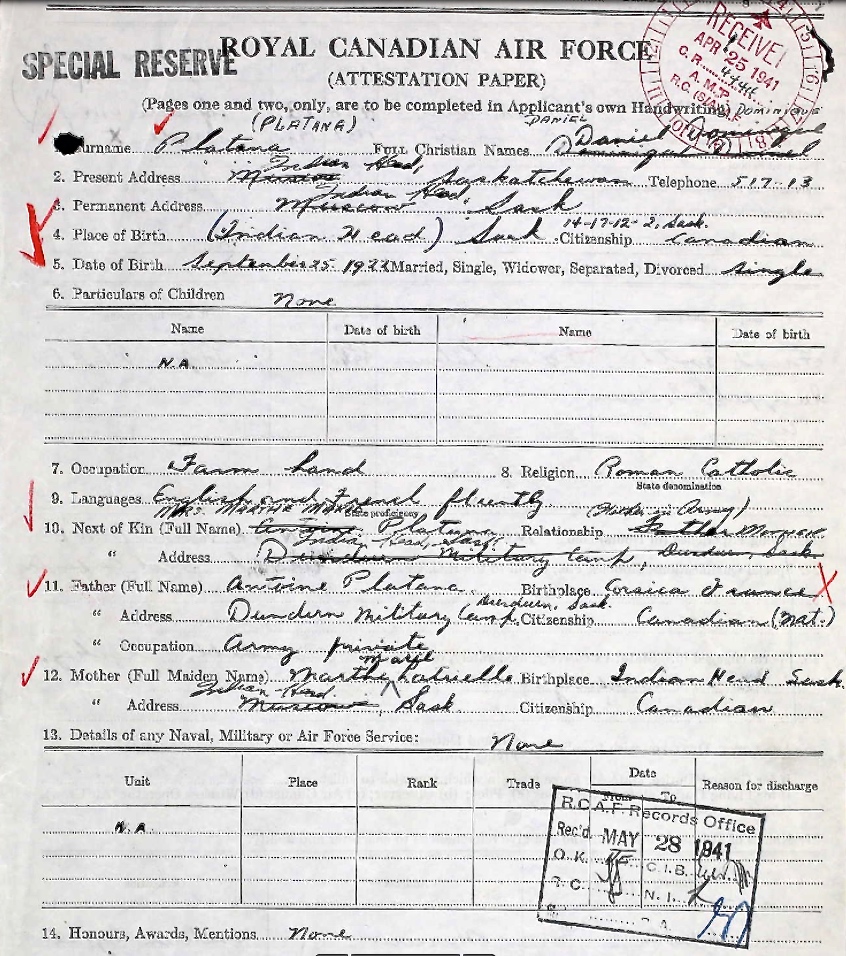 SPECIAL RESERVE
ROYAL CANADIAN AIR FORCE
(ATTESTATION PAPER)
RECEIVED
APR 25 1941
C.R.
A.M.P.
(Pages one and two, only, are to be completed in Applicant's own Handwriting) DOMINIQUE
(PLATANA) DANIEL
Daniel Dominique
Surname Platana Full Christian Names Dominique Daniel
Indian Head,
2. Present Address Muscow Saskatchewan Telephone 517-13
Indian Head
3. Permanent Address Muscow Sask
14-17-12-2, Sask.
4. Place of Birth (Indian Head) Sask Citizenship Canadian
5. Date of Birth September 25 1922 Married, Single, Widower, Separated, Divorced Single
6. Particulars of Children None
Name Date of birth Name Date of birth
N.A.
7. Occupation Farm hand 8. Religion Roman Catholic
State denomination
9. Languages English and French fluently
State proficiency
MRS. MARTHA MARIE (Father in Army)
10. Next of Kin (Full Name) Antoine Platana Relationship Father Mother
Indian Head, Sask
" Address Dundurn Military Camp, Dundurn, Sask
11. Father (Full Name) Antoine Platana Birthplace Corsica France
Dundurn, Sask.
" Address Dundurn Military Camp Citizenship Canadian (Nat.)
" Occupation Army private
Marie
12. Mother (Full Maiden Name) Martha Birthplace Indian Head Sask.
Indian Head
" Address Muscow, Sask Citizenship Canadian
13. Details of any Naval, Military or Air Force Service: None
Unit Place Rank Trade Date From To Reason for discharge
N.A.
R.C.A.F. Records Office
Rec'd. MAY 28 1941
O.K. C.I.B.
T.C. N.I.
P.A.
14. Honours, Awards, Mentions None